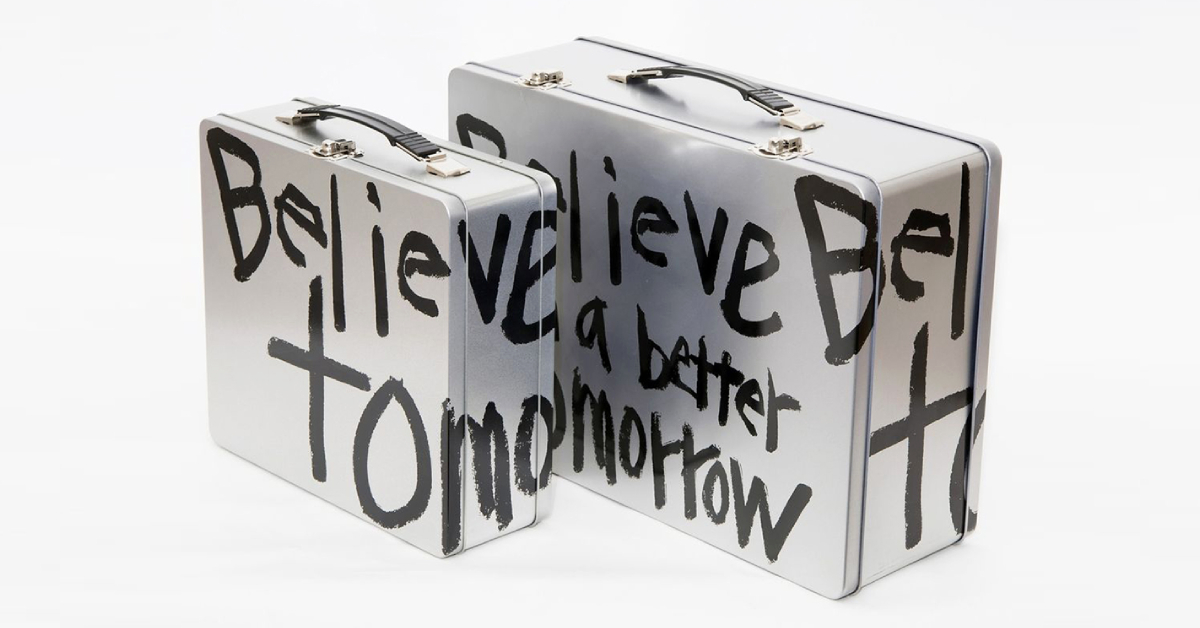 Believe
tomo
Believe
a better
omorrow
Bel
to